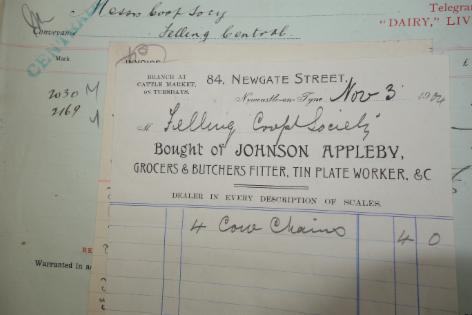 Messrs Coop Socy
Felling Central
Conveyance
CENTRAL
Telegra
"DAIRY," LIV
Mark
2030 M
2169
INVOICE
BRANCH AT
CATTLE MARKET,
ON TUESDAYS.
84, NEWGATE STREET,
Newcastle-on-Tyne, Nov 3 1904
M Felling Coopt Society
Bought of JOHNSON APPLEBY,
GROCERS & BUTCHERS FITTER, TIN PLATE WORKER, &C
DEALER IN EVERY DESCRIPTION OF SCALES.
4 Cow Chains 4 0
RE
Warranted in ac